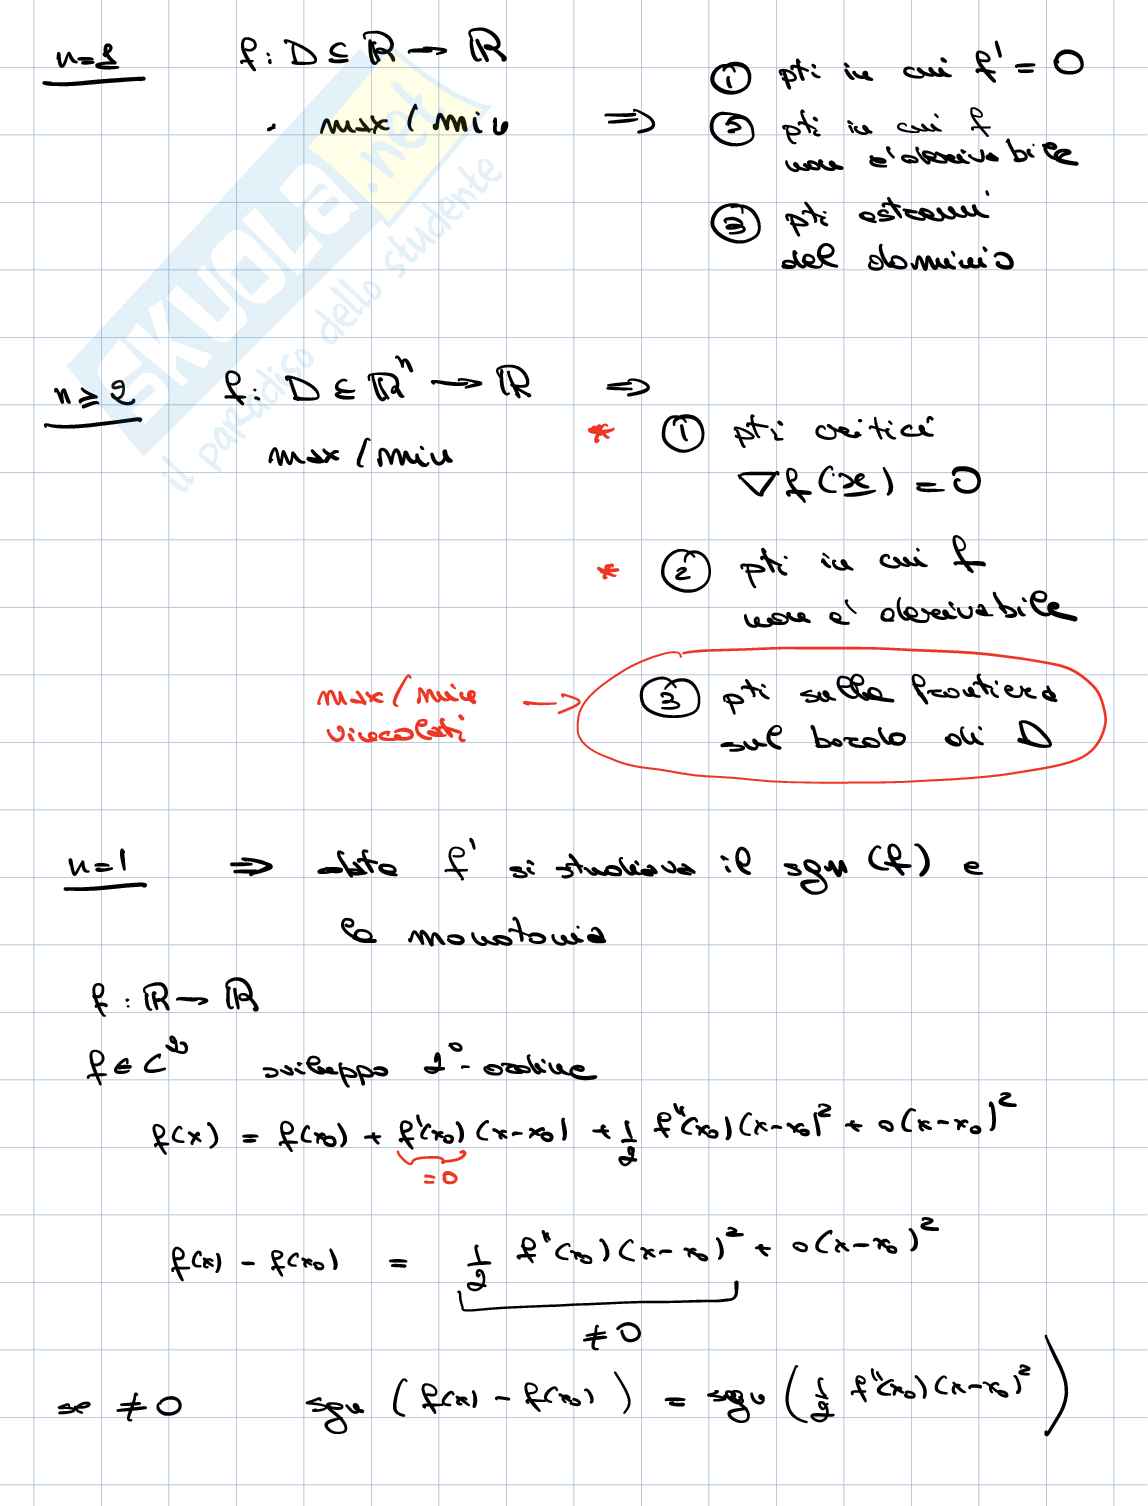 n=1 f: D ⊆ ℝ → ℝ
• max / min ⇒ ① pti in cui f' = 0
② pti in cui f
non e' derivabile
③ pti estremi
del dominio
n ≥ 2 f: D ⊆ ℝⁿ → ℝ ⇒
max / min
* ① pti critici
∇f(x) = 0
* ② pti in cui f
non e' derivabile
max / min
vincolati → ③ pti sulla frontiera
sul bordo di D
n=1 ⇒ data f' si studiava il sgn (f) e
la monotonia
f: ℝ → ℝ
f ∈ C² sviluppo 2°-ordine
f(x) = f(x₀) + f'(x₀)(x-x₀) + 1/2 f''(x₀)(x-x₀)² + o(x-x₀)²
= 0
f(x) - f(x₀) = 1/2 f''(x₀)(x-x₀)² + o(x-x₀)²
≠ 0
se ≠ 0 sgn (f(x) - f(x₀)) = sgn (1/2 f''(x₀)(x-x₀)²)
SKUOLA.net
il paradiso dello studente